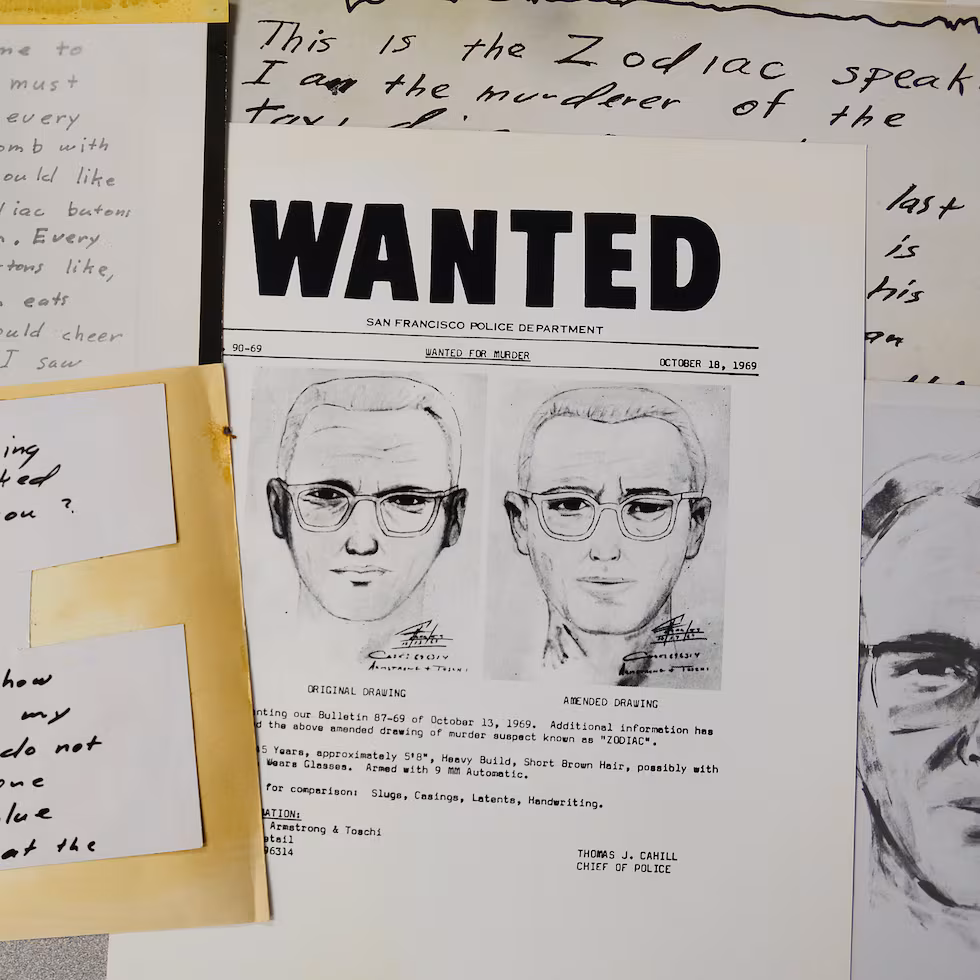 me to
must
every
omb with
ould like
diac butons
n. Every
tons like,
eats
ould cheer
I saw
This is the Zodiac speak
I am the murderer of the
last
is
his
an
WANTED
SAN FRANCISCO POLICE DEPARTMENT
90-69 WANTED FOR MURDER OCTOBER 18, 1969
ORIGINAL DRAWING AMENDED DRAWING
nting our Bulletin 87-69 of October 13, 1969. Additional information has
d the above amended drawing of murder suspect known as "ZODIAC".
45 Years, approximately 5'8", Heavy Build, Short Brown Hair, possibly with
Wears Glasses. Armed with 9 MM Automatic.
for comparison: Slugs, Casings, Latents, Handwriting.
ATION:
Armstrong & Toschi
etail
96314
THOMAS J. CAHILL
CHIEF OF POLICE
ing
ted
ou ?
how
my
do not
one
lue
at the